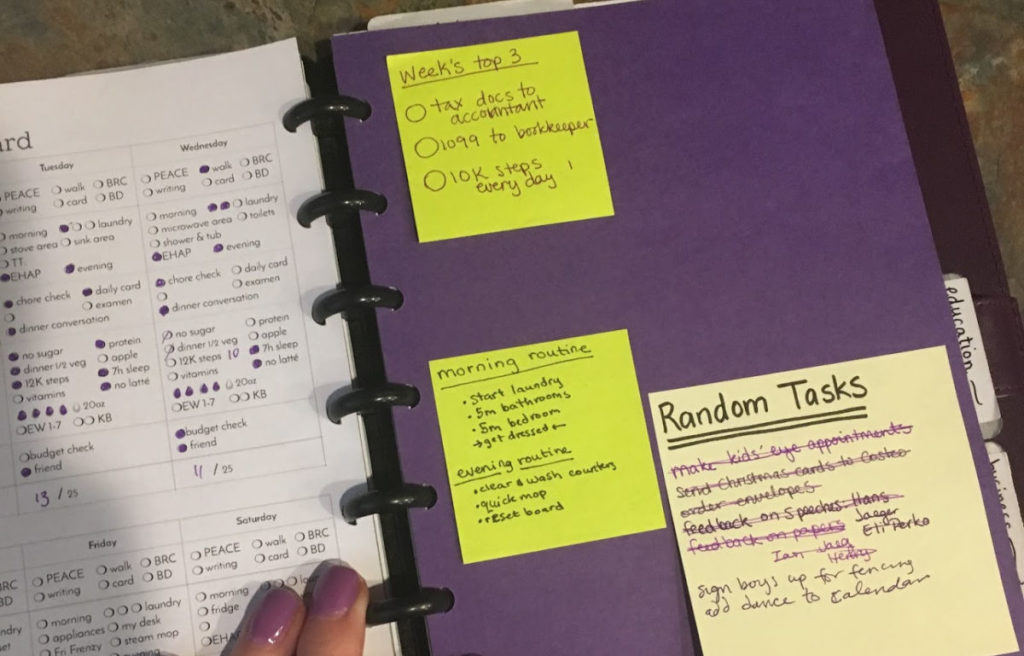 Tuesday
PEACE walk BRC
writing card BD
morning laundry
stove area sink area
TT.
EHAP evening
chore check daily card
examen
dinner conversation
no sugar protein
dinner 1/2 veg apple
12K steps 7h sleep
vitamins no latté
20oz
EW 1-7 KB
budget check
friend
13 / 25
Wednesday
PEACE walk BRC
writing card BD
morning laundry
microwave area toilets
shower & tub
EHAP evening
chore check daily card
examen
dinner conversation
no sugar protein
dinner 1/2 veg apple
12K steps 10 7h sleep
vitamins no latté
20oz
EW 1-7 KB
budget check
friend
11 / 25
BRC
BD
Friday
PEACE walk BRC
writing card BD
morning laundry
appliances my desk
Fri Frenzy steam mop
Saturday
PEACE walk BRC
writing card BD
morning
fridge
Week's top 3
tax docs to
accountant
1099 to bookkeeper
10K steps
every day
morning routine
• start laundry
• 5m bathrooms
• 5m bedroom
→ get dressed ←
evening routine
• clear & wash counters
• quick mop
• reset board
Random Tasks
make kids' eye appointments
send Christmas cards to Costco
order envelopes
feedback on speeches Hans
feedback on papers Jaeger
Eti Perko
Ian
Henry
sign boys up for fencing
add dance to calendar
education